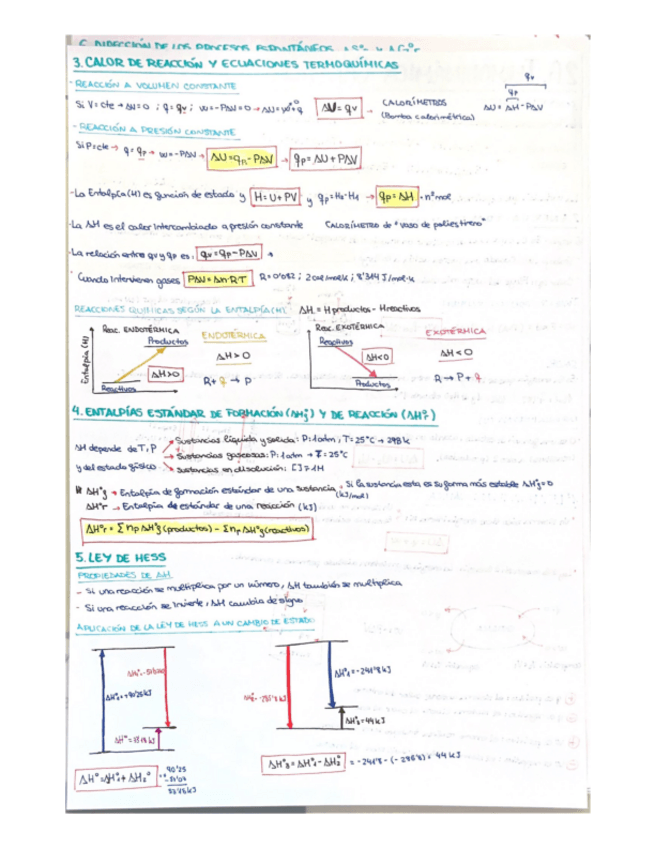 3. CALOR DE REACCIÓN Y ECUACIONES TERMOQUÍMICAS
- REACCIÓN A VOLUMEN CONSTANTE
Si V=cte → ΔV=0 ; q=qv ; w=-PΔV=0 → ΔU = qv → CALORÍMETROS
(Bomba calorimétrica)
qv
qp
ΔU = ΔH - PΔV
- REACCIÓN A PRESIÓN CONSTANTE
Si P=cte → q=qp → w=-PΔV → ΔU=qp-PΔV → qp=ΔU+PΔV
-La Entalpía (H) es función de estado y H=U+PV y qp=H2-H1 → qp=ΔH · nº mol
-La ΔH es el calor intercambiado a presión constante CALORÍMETRO de "vaso de poliestireno"
-La relación entre qv y qp es: qv=qp-PΔV →
Cuando intervienen gases PΔV=Δn·R·T R=0'082 ; 2 cal/mol·k ; 8'314 J/mol·k
REACCIONES QUÍMICAS SEGÚN LA ENTALPÍA (H): ΔH = H productos - H reactivos
Entalpía (H)
Reac. ENDOTÉRMICA
Productos
ΔH>0
Reactivos
ENDOTÉRMICA
ΔH>0
R+q → P
Reac. EXOTÉRMICA
Reactivos
ΔH<0
Productos
EXOTÉRMICA
ΔH<0
R → P+q
4. ENTALPÍAS ESTÁNDAR DE FORMACIÓN (ΔH°f) Y DE REACCIÓN (ΔH°r)
ΔH depende de T, P
y del estado físico
Sustancias líquida y sólida: P: 1atm, T=25°C → 298k
Sustancias gaseosas: P: 1atm → T=25°C
Sustancias en disolución: [ ]=1M
ΔH°f → Entalpía de formación estándar de una sustancia. Si la sustancia esta es su forma más estable ΔH°f=0
(kJ/mol)
ΔH°r → Entalpía de estándar de una reacción (kJ)
ΔH°r = Σ np ΔH°f (productos) - Σ np ΔH°f (reactivos)
5. LEY DE HESS
PROPIEDADES DE ΔH
- Si una reacción se multiplica por un número, ΔH también se multiplica
- Si una reacción se invierte, ΔH cambia de signo
APLICACIÓN DE LA LEY DE HESS A UN CAMBIO DE ESTADO
ΔH°1=+90'25 kJ
ΔH°1=-241'8 kJ
ΔH°3=44 kJ
ΔH°=ΔH°1+ΔH2°
90'25
ΔH°3=ΔH°1-ΔH°2 = -241'8-(-285'8) = 44 kJ